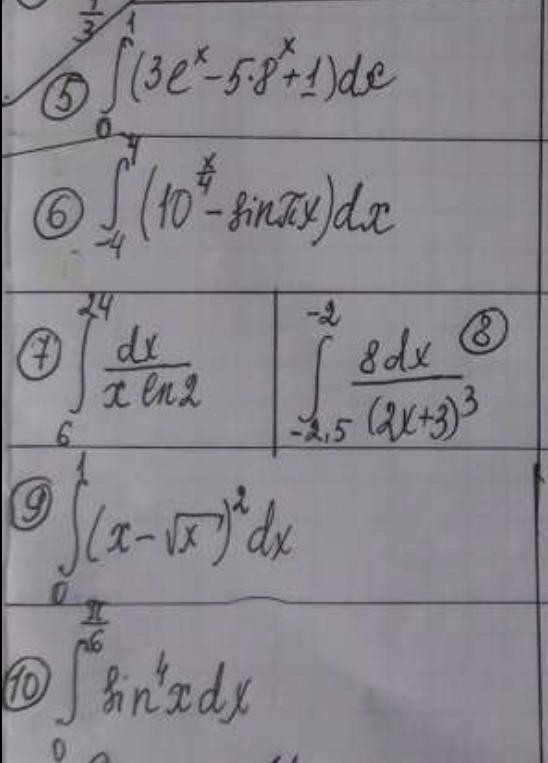 1/3
⑤ ∫₀¹ (3eˣ - 5·8ˣ + 1)dx
⑥ ∫₋₄⁴ (10^(x/4) - sinπx)dx
⑦ ∫₆²⁴ dx/(x ln2)
∫₋₂,₅⁻² 8dx/(2x+3)³ ⑧
⑨ ∫₀¹ (x - √x)² dx
⑩ ∫₀^(π/6) sin⁴xdx